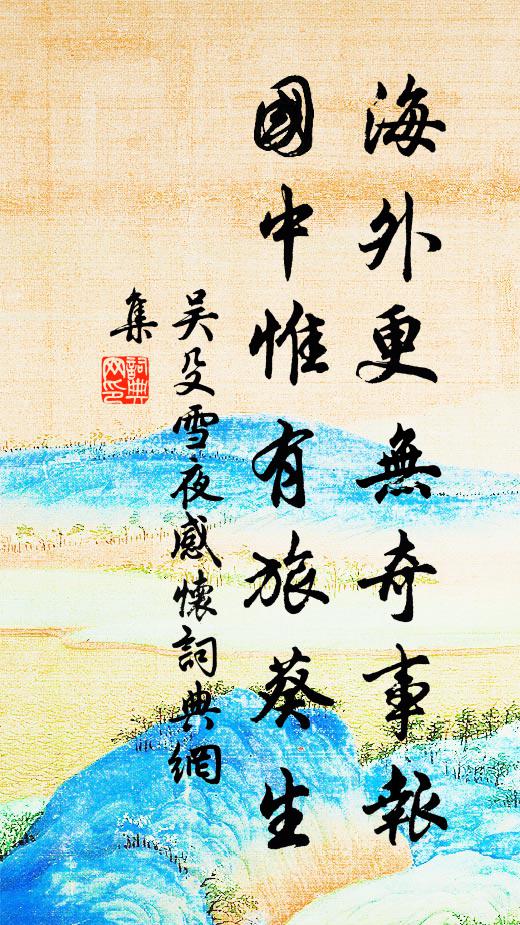 海外更無奇事報
國中惟有旅葵生
吴殳雪夜感懷詞典網
集
詞典
网印